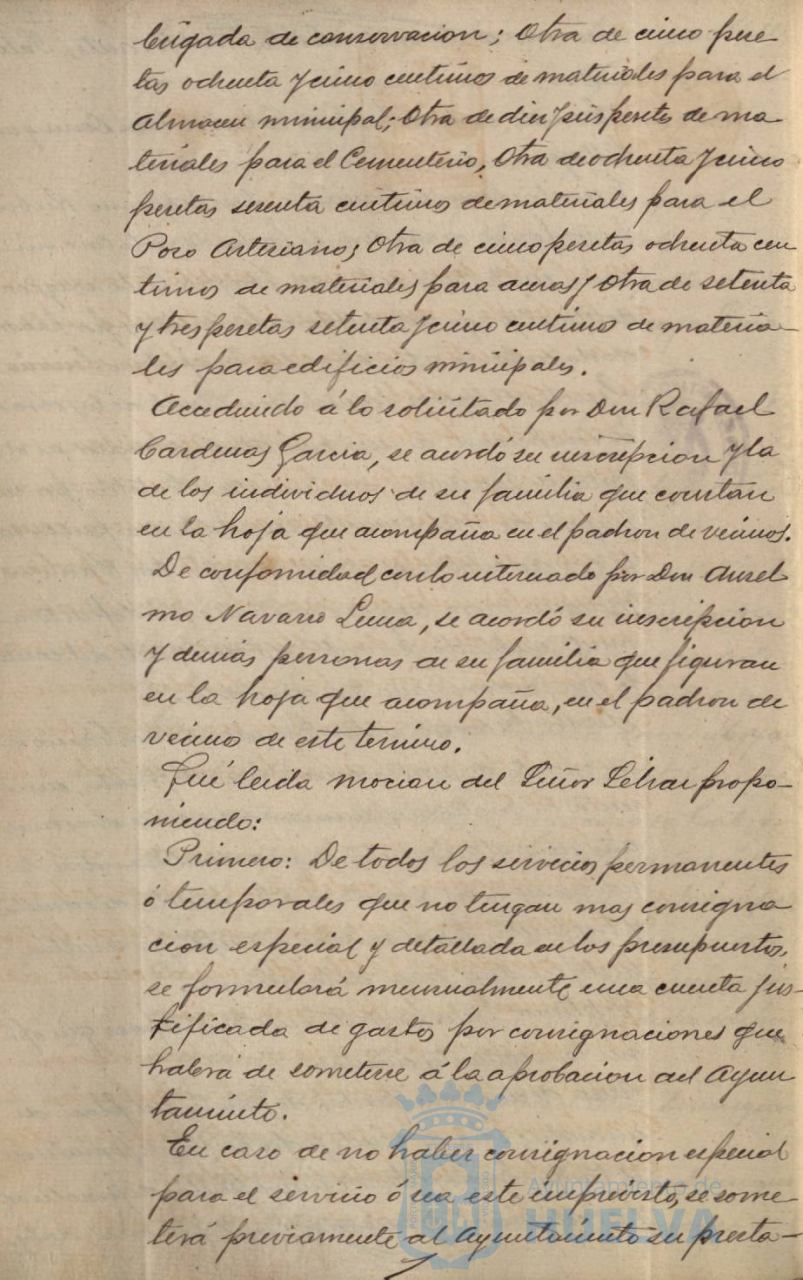 brigada de conservacion; Otra de cinco pese
tas ochenta y cinco centimos de materiales para el
Almacen municipal; Otra de diez y seis pesetas de ma
teriales para el Cementerio, Otra de ochenta y cinco
pesetas sesenta centimos de materiales para el
Pozo Artesiano; Otra de cinco pesetas ochenta cen
timos de materiales para aceras y Otra de setenta
y tres pesetas setenta y cinco centimos de materia-
les para edificios municipales.
Accediendo á lo solicitado por Don Rafael
Cardenas Garcia, se acordó su inscripcion y la
de los individuos de su familia que constan
en la hoja que acompaña en el padron de vecinos.
De conformidad con lo interesado por Don Ansel
mo Navarro Luna, se acordó su inscripcion
y demás personas de su familia que figuran
en la hoja que acompaña, en el padron de
vecinos de este termino.
Fué leida mocion del Señor propo-
niendo:
Primero: De todos los servicios permanentes
ó temporales que no tengan mas consigna
cion especial y detallada en los presupuestos,
se formulará mensualmente una cuenta jus-
tificada de gastos por consignaciones que
habrá de someterse á la aprobacion del Ayun
tamiento.
En caso de no haber consignacion especial
para el servicio ó sea este imprevisto, se some-
terá previamente al Ayuntamiento su presta-
Ayuntamiento de
HUELVA